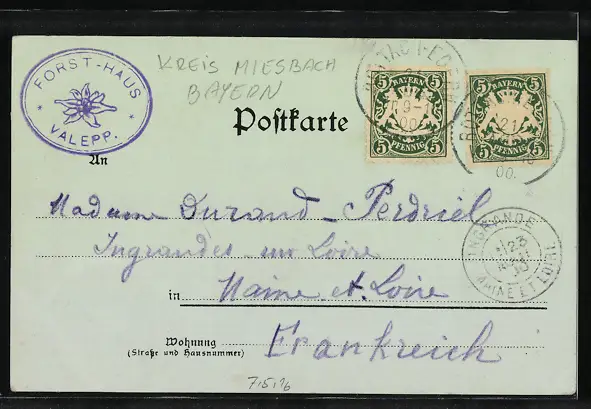 FORST-HAUS
VALEPP.
KREIS MIESBACH
BAYERN
Postkarte
5 BAYERN 5
5 PFENNIG 5
5 BAYERN 5
21
5 PFENNIG 5
00.
An
Madame Durand-Perdriel
Ingrandes sur Loire
INGRANDE
23
MAINE ET LOIRE
in Maine et Loire
Wohnung
(Straße und Hausnummer)
Frankreich